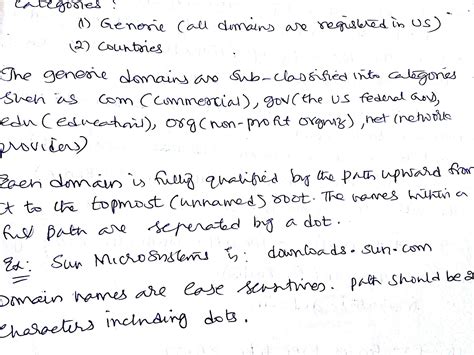 categories :
(1) Generic (all domains are registered in US)
(2) Countries
The generic domains are Sub-classified into categories
Such as com (commercial), gov (the US federal gov),
edu (educations), org (non-profit organiz), net (network
providers)
Each domain is fully qualified by the path upward from
it to the topmost (unnamed) root. The names within a
full path are seperated by a dot.
Ex: Sun MicroSystems is: downloads.sun.com
Domain names are Case Sensitives. path should be
characters including dots.